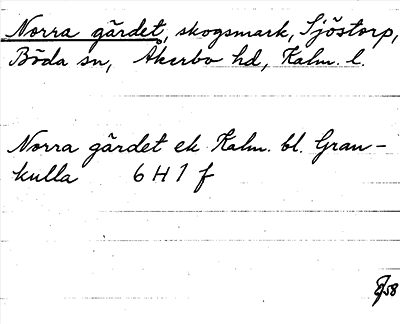 Norra gärdet, skogsmark, Sjöstorp,
Böda sn, Åkerbo hd, Kalm. l.
Norra gärdet ek Kalm. bl. Gran-
kulla 6 H 1 f
58